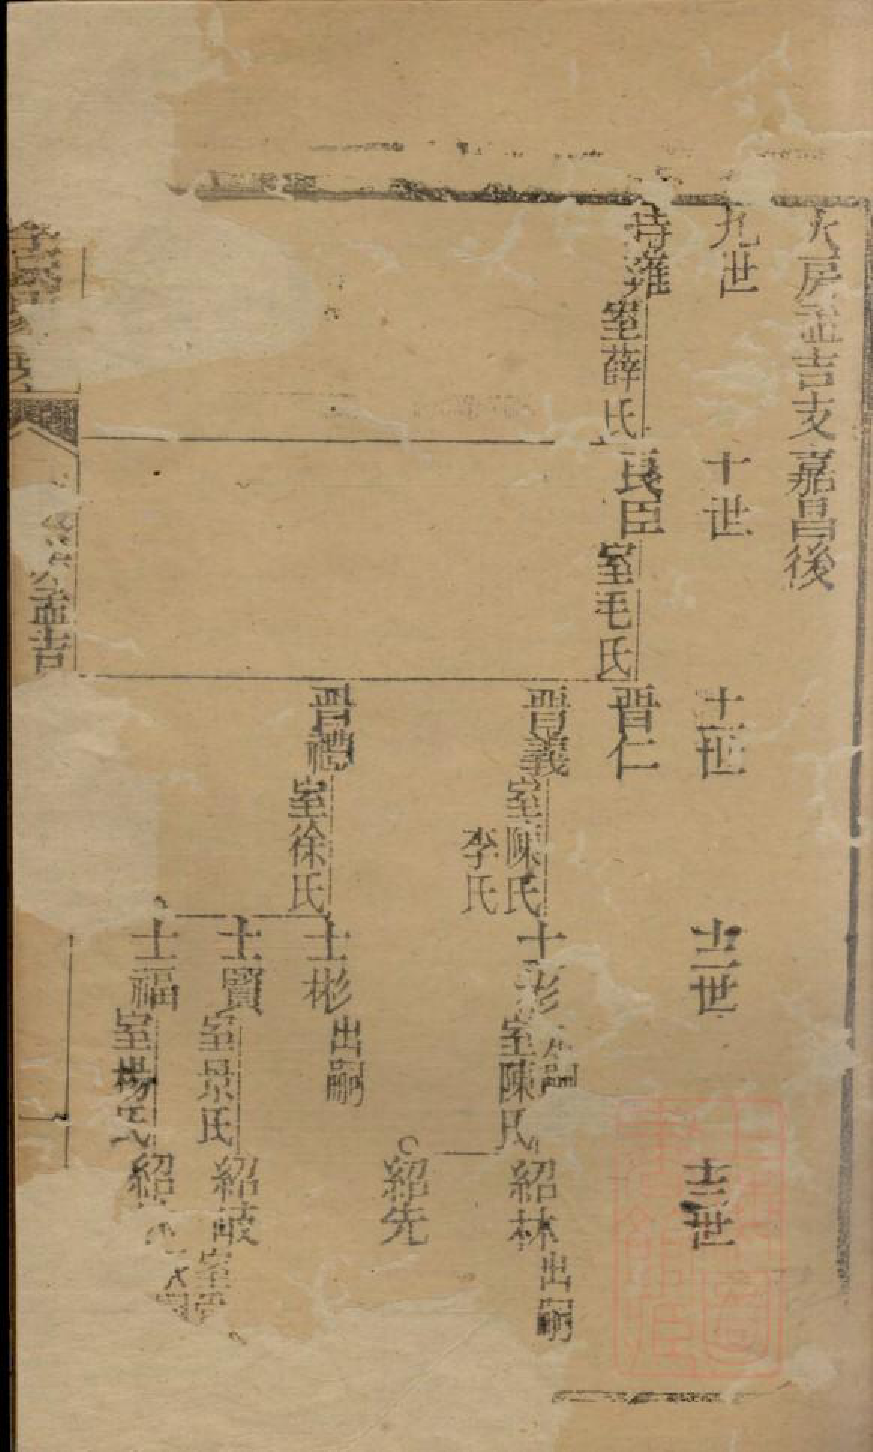 大房孟吉支嘉昌後
九世
十世
十一世
十二世
十三世
時雍
室薛氏
良臣
室毛氏
晋仁
晋義
室陳氏
李氏
士彬
室陳氏
紹林
出嗣
紹先
晋禮
室徐氏
士彬
出嗣
士賢
室景氏
紹岐
室
士福
室楊氏
紹
孟吉